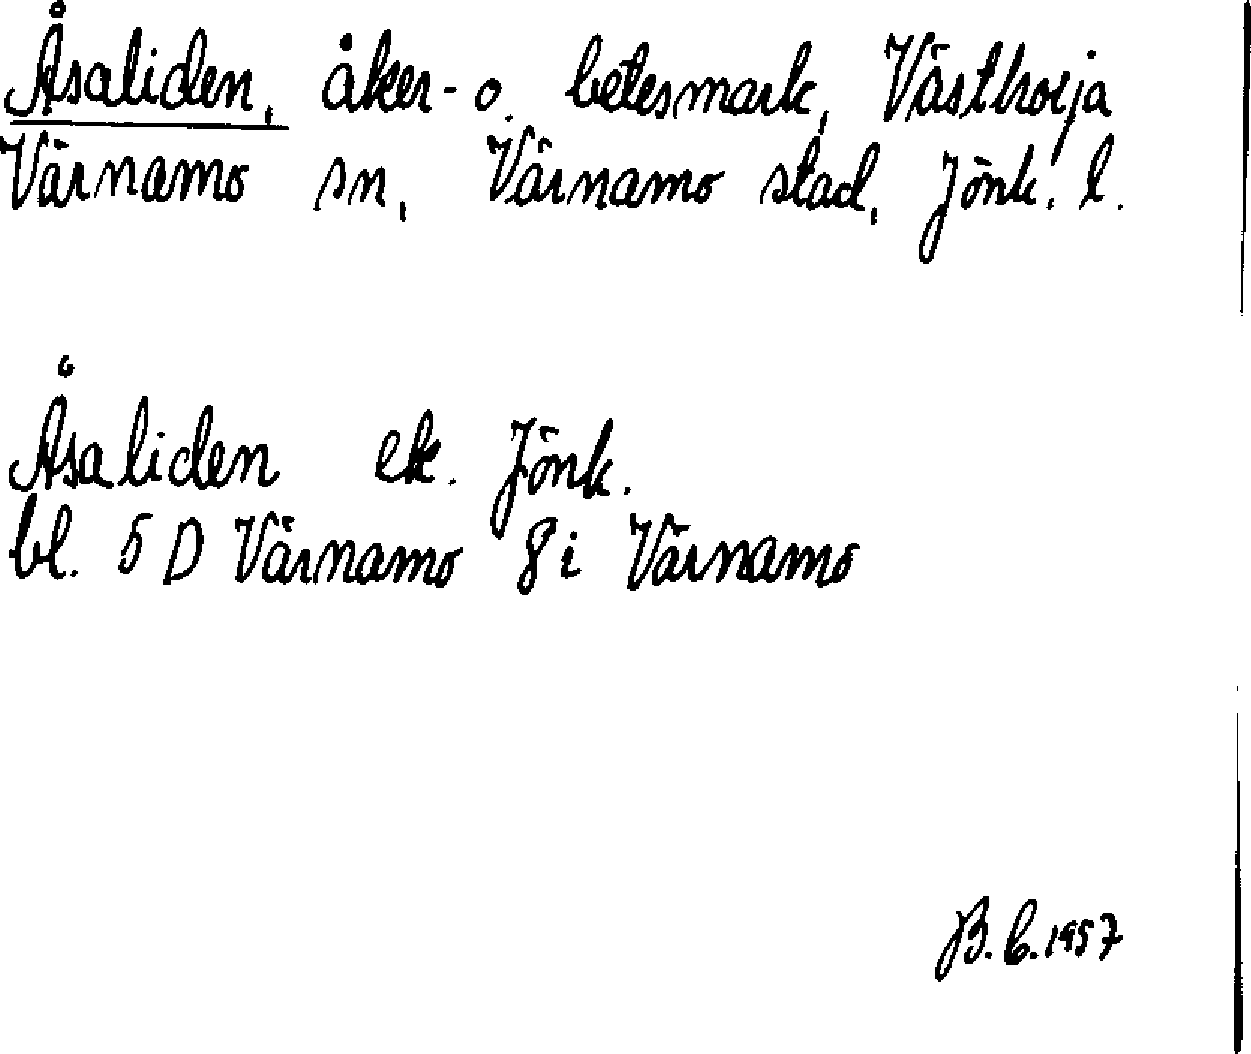 Åsaliden, åker- o. betesmark, Västhorja
Värnamo sn, Värnamo stad, Jönk. l.
Åsaliden ek. Jönk.
bl. 5 D Värnamo 8 i Värnamo
B. C. 1957